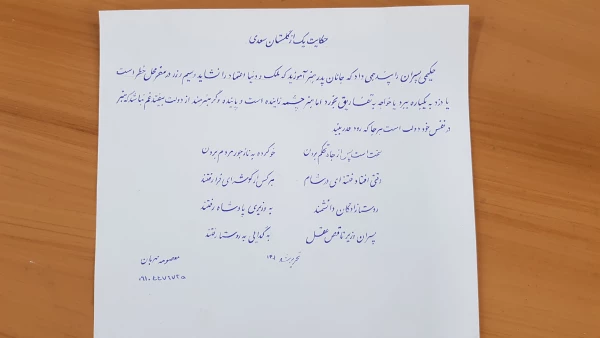 حکایت یک از گلستان سعدی
حکیمی پسران را پند همی داد که جانان پدر هنر آموزید که ملک و دنیا اعتماد را نشاید و سیم و زر در سفر محل خطر است
یا دزد به یکباره ببرد یا خواجه به تفاریق بخورد اما هنر چشمه زاینده است و پاینده وگر هنرمند از دولت بیفتد غم نباشد که هنر
در نفس خود دولت است هر جا که رود قدر بیند
سخت است پس از جاه تحکم بردن خو کرده به ناز جور مردم بردن
وقتی افتاد فتنه ای در شام هر کس از گوشه ای فرا رفتند
روستازادگان دانشمند به وزیری پادشاه رفتند
پسران وزیر ناقص عقل به گدایی به روستا رفتند
معصومه مهربان